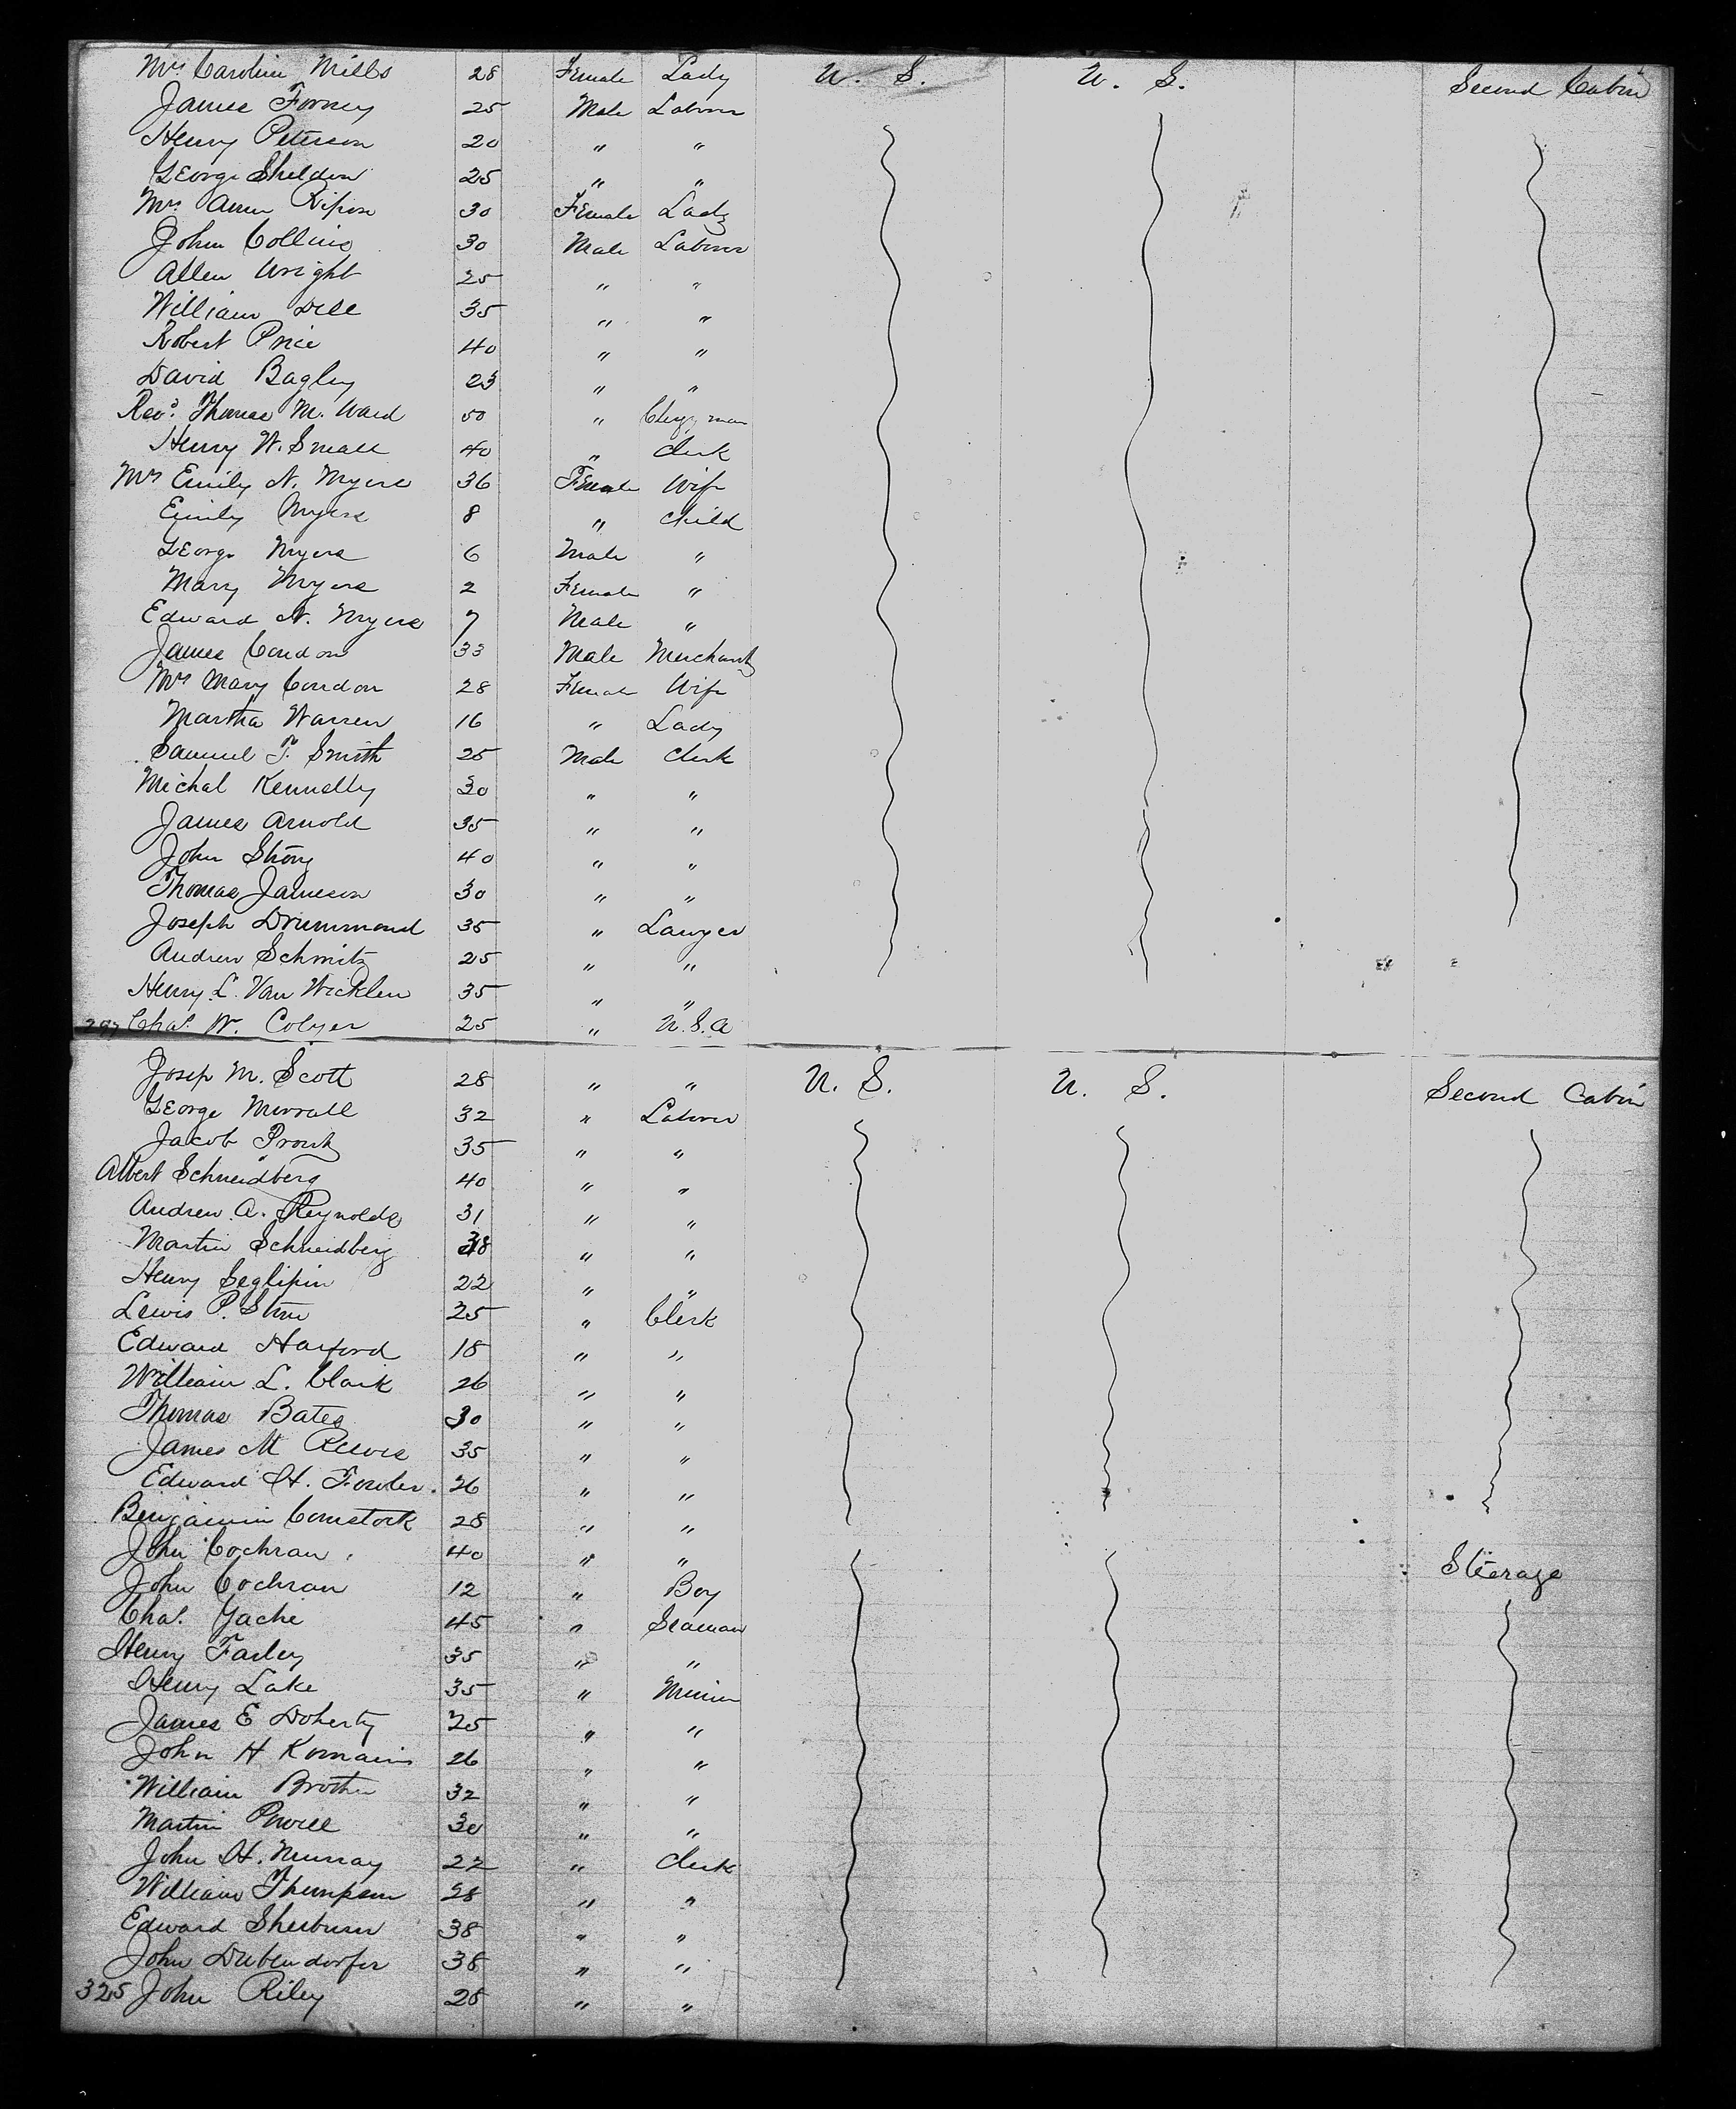 Mrs Carolin Mills 28 Female Lady U. S. U. S. Second Cabin
James Forney 25 Male Laborer
Henry Peterson 20 " "
George Sheldon 25 " "
Mrs Ann Ripon 30 Female Lady
John Collins 30 Male Laborer
Allen Wright 25 " "
William Dell 35 " "
Robert Price 40 " "
David Bagley 23 " "
Revd. Thomas M. Ward 50 " Clergyman
Henry W. Small 40 " Clerk
Mrs Emily N. Myers 36 Female Wife
Emily Myers 8 " Child
George Myers 6 Male "
Mary Myers 2 Female "
Edward N. Myers 7 Male "
James Condon 33 Male Merchant
Mrs Mary Condon 28 Female Wife
Martha Warren 16 " Lady
Samuel T. Smith 25 Male Clerk
Michal Kennelly 30 " "
James Arnold 35 " "
John Strong 40 " "
Thomas Jameson 30 " "
Joseph Drummond 35 " Lawyer
Andrew Schmitz 25 " "
Henry L. Van Wicklen 35 " "
297 Chas. W. Colyer 25 " U.S.A
Josep M. Scott 28 " " U. S. U. S. Second Cabin
George Morrall 32 " Laborer
Jacob Pronk 35 " "
Albert Schneidberg 40 " "
Andrew A. Reynolds 31 " "
Martin Schneidberg 38 " "
Henry 22 " "
Lewis P. 25 " Clerk
Edward Harford 18 " "
William L. Clark 26 " "
Thomas Bates 30 " "
James M Reeves 35 " "
Edward H. Fowler. 26 " "
Benjamin Comstock 28 " "
John Cochran 40 " " Steerage
John Cochran 12 " Boy
Chas. Yache 45 " Seaman
Henry Farley 35 " "
Henry Lake 35 " Miner
James E Doherty 25 " "
John H Romains 26 " "
William Broth 32 " "
Martin Powell 30 " "
John H. Murray 22 " Clerk
William Thompson 28 " "
Edward Sherburn 38 " "
John Dubendorfer 38 " "
325 John Riley 28 " "